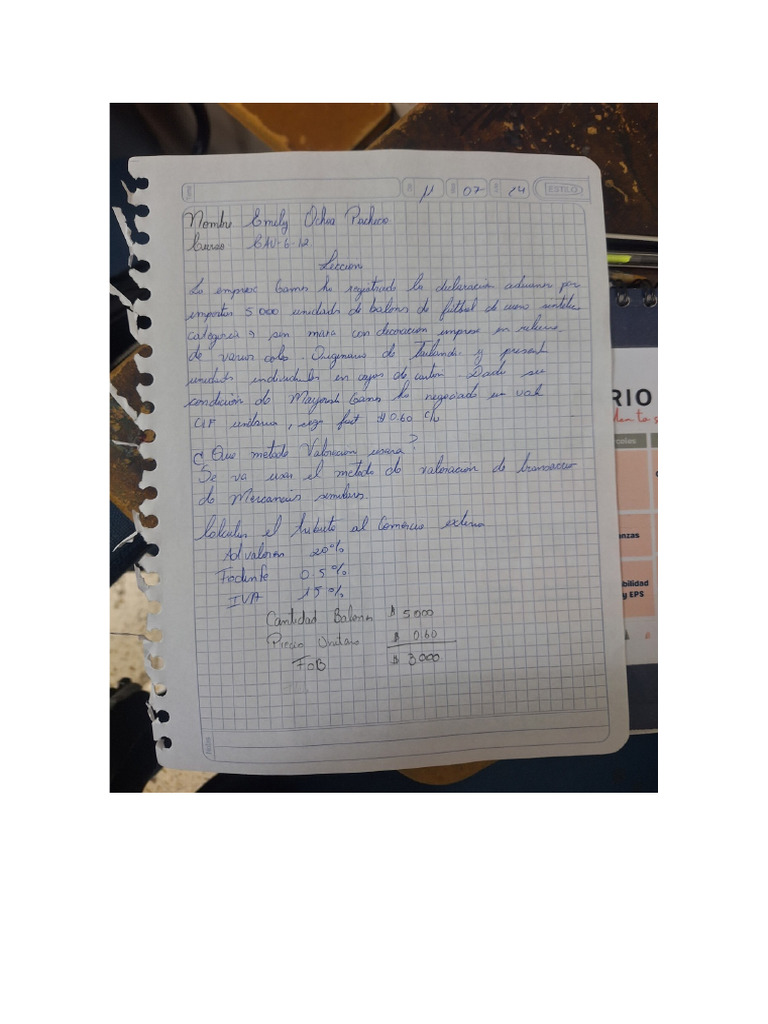 11 07 24 ESTILO
Nombre Emily Ochoa Pacheco
Curso CAU-6-12
Leccion
La empresa Gamers ha registrado la declaración aduanera por
importar 5 000 unidads de balons de futbol de cuero sintetic
categoria 9 sin marca con decoración impresa en relieve
de varios colo. Originario de Tailandi y present
unidads individuals en cajas de carton. Dado su
condición de Mayorist ha negociado un valo
CIF unitario, sigo fact $ 0.60 c/u
¿ Que metodo Valoracion usara?
Se va usar el metodo de valoracion de transaccio
de Mercancias similars.
Calcular el tributo al Comercio exterio
Advalorem 20%
Fodinfa 0.5%
IVA 15%
Cantidad Balones $ 5000
Precio Unitario $ 0,60
FOB $ 3000
Notas
RIO
anzas
ibilidad
y EPS